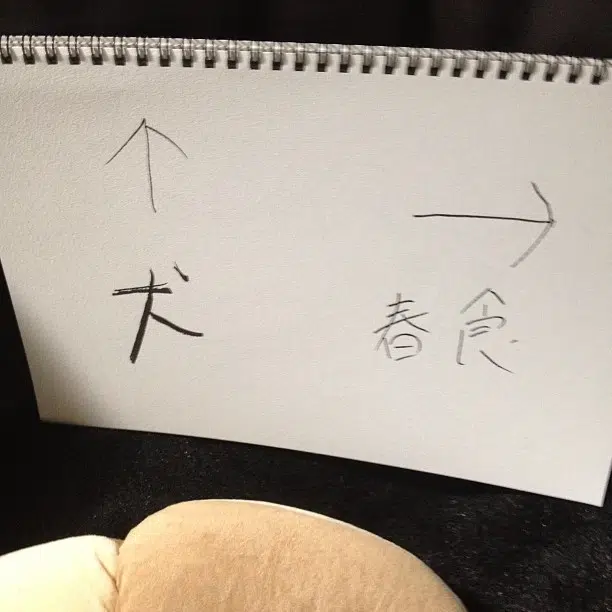 ↑ →
犬 春食